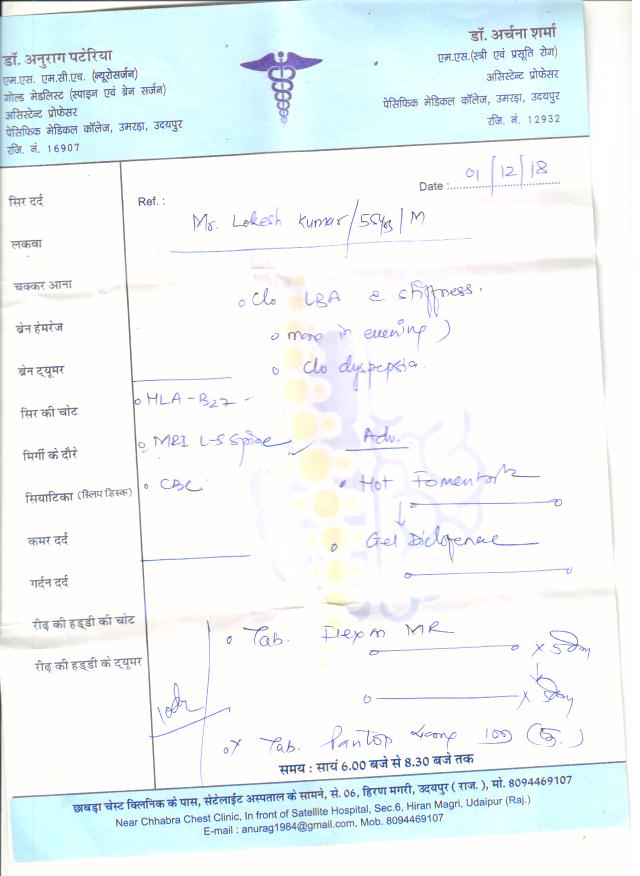 डॉ. अनुराग पटेरिया
एम.एस. एम.सी.एच. (न्यूरोसर्जन)
गोल्ड मेडलिस्ट (स्पाइन एवं ब्रेन सर्जन)
असिस्टेन्ट प्रोफेसर
पेसिफिक मेडिकल कॉलेज, उमरड़ा, उदयपुर
रजि. नं. 16907
डॉ. अर्चना शर्मा
एम.एस.(स्त्री एवं प्रसूति रोग)
असिस्टेन्ट प्रोफेसर
पेसिफिक मेडिकल कॉलेज, उमरड़ा, उदयपुर
रजि. नं. 12932
Ref. :
Date : 01/12/18
Mr. Lokesh Kumar/55yrs/M
सिर दर्द
लकवा
चक्कर आना
ब्रेन हेमरेज
ब्रेन ट्यूमर
सिर की चोट
मिर्गी के दौरे
सियाटिका (स्लिप डिस्क)
कमर दर्द
गर्दन दर्द
रीढ़ की हड्डी की चोट
रीढ़ की हड्डी के ट्यूमर
c/o LBA c stiffness.
more in evening)
c/o dyspepsia
HLA-B27 -
MRI L-S Spine
CBC
Adv.
Hot Fomentatn
Gel Diclofenac
Tab. Flexon MR
x 5 day
x 5 day
Tab. Pantop 40mg
समय : सायं 6.00 बजे से 8.30 बजे तक
छाबड़ा चेस्ट क्लिनिक के पास, सेटेलाईट अस्पताल के सामने, से. 06, हिरण मगरी, उदयपुर ( राज. ), मो. 8094469107
Near Chhabra Chest Clinic, In front of Satellite Hospital, Sec.6, Hiran Magri, Udaipur (Raj.)
E-mail : anurag1984@gmail.com, Mob. 8094469107